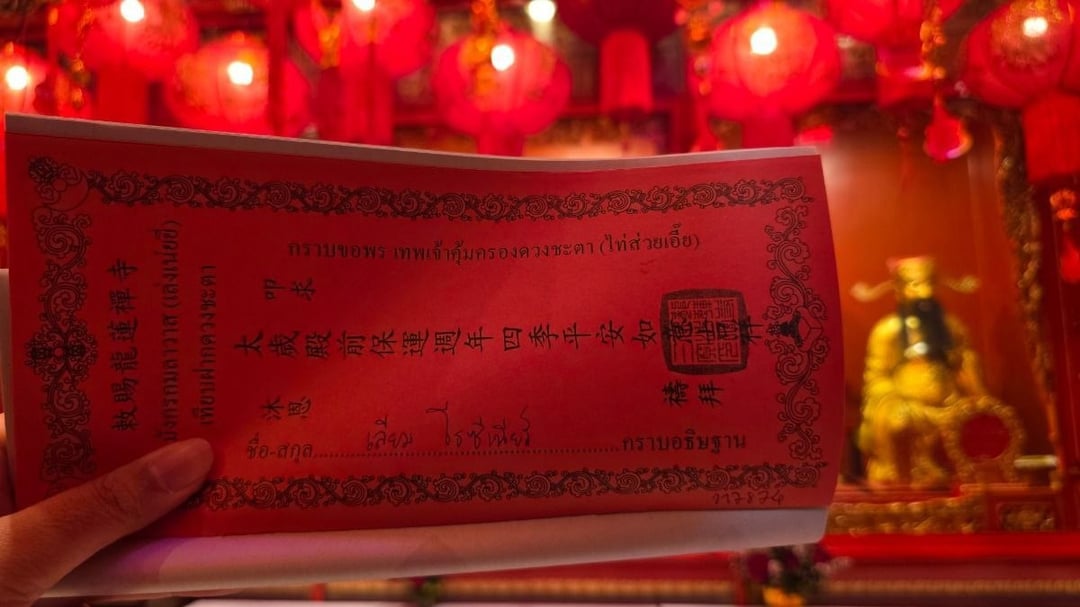 敕賜龍蓮禪寺
มังกรกมลาวาส (เล่งเน่ยยี่)
เทียบฝากดวงชะตา
กราบขอพร เทพเจ้าคุ้มครองดวงชะตา (ไท่ส่วยเอี๊ย)
叩求
太歲殿前保運週年四季平安如意吉祥
沐恩
禱拜
ชื่อ-สกุล กราบอธิษฐาน
117874